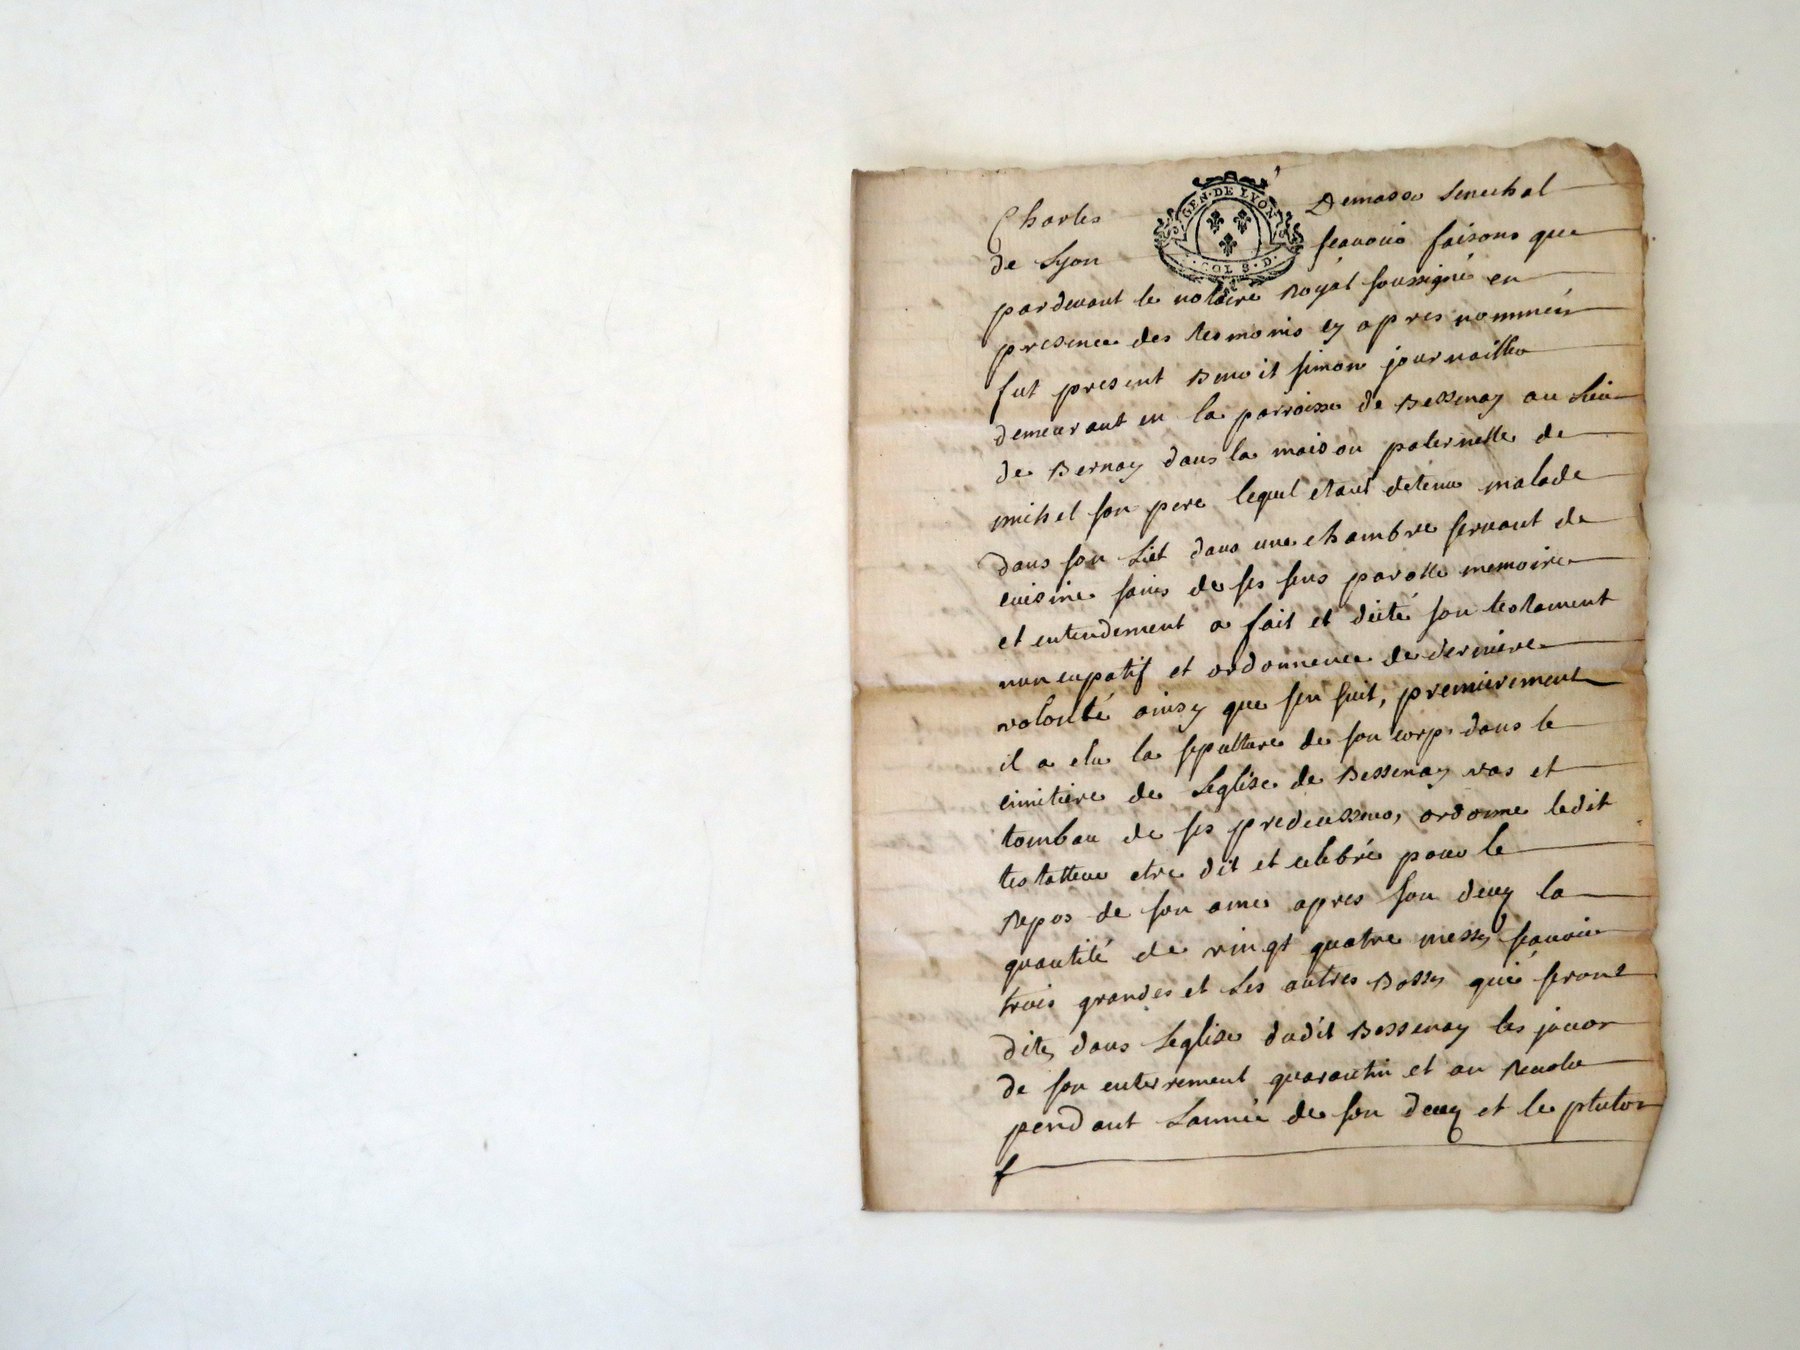 Charles Demasso Senechal
GEN·DE LYON
de Lyon scavoir faisons que
COL S·D·
pardevant le notaire Royal soussigné en
presence des tesmoins cy apres nommés
fut present Benoit simon journaillier
demeurant en la parroisse de Bessenay au Lieu
de Bernay dans la maison paternelle de
michel son pere lequel etant detenu malade
dans son Liet dans une chambre servant de
cuisine sains de ses sens parolle memoire
et entendement a fait et dicté son testament
nuncupatif et ordonnence de derniere
volonté ainsy que sen suit, premierement
il a elu la sepulture de son corps dans le
cimitiere de Leglise de Bessenay vas et
tombau de ses predecesseurs, ordonne ledit
testatteur etre dit et celebré pour le
Repos de son ame apres son decey la
quantité de vingt quatre messes scavoir
trois grandes et Les autres Basses qui seront
dites dans Leglise dudit Bessenay les jours
de son enterrement quarantin et au Revolu
pendant Lannée de son decey et le plutot